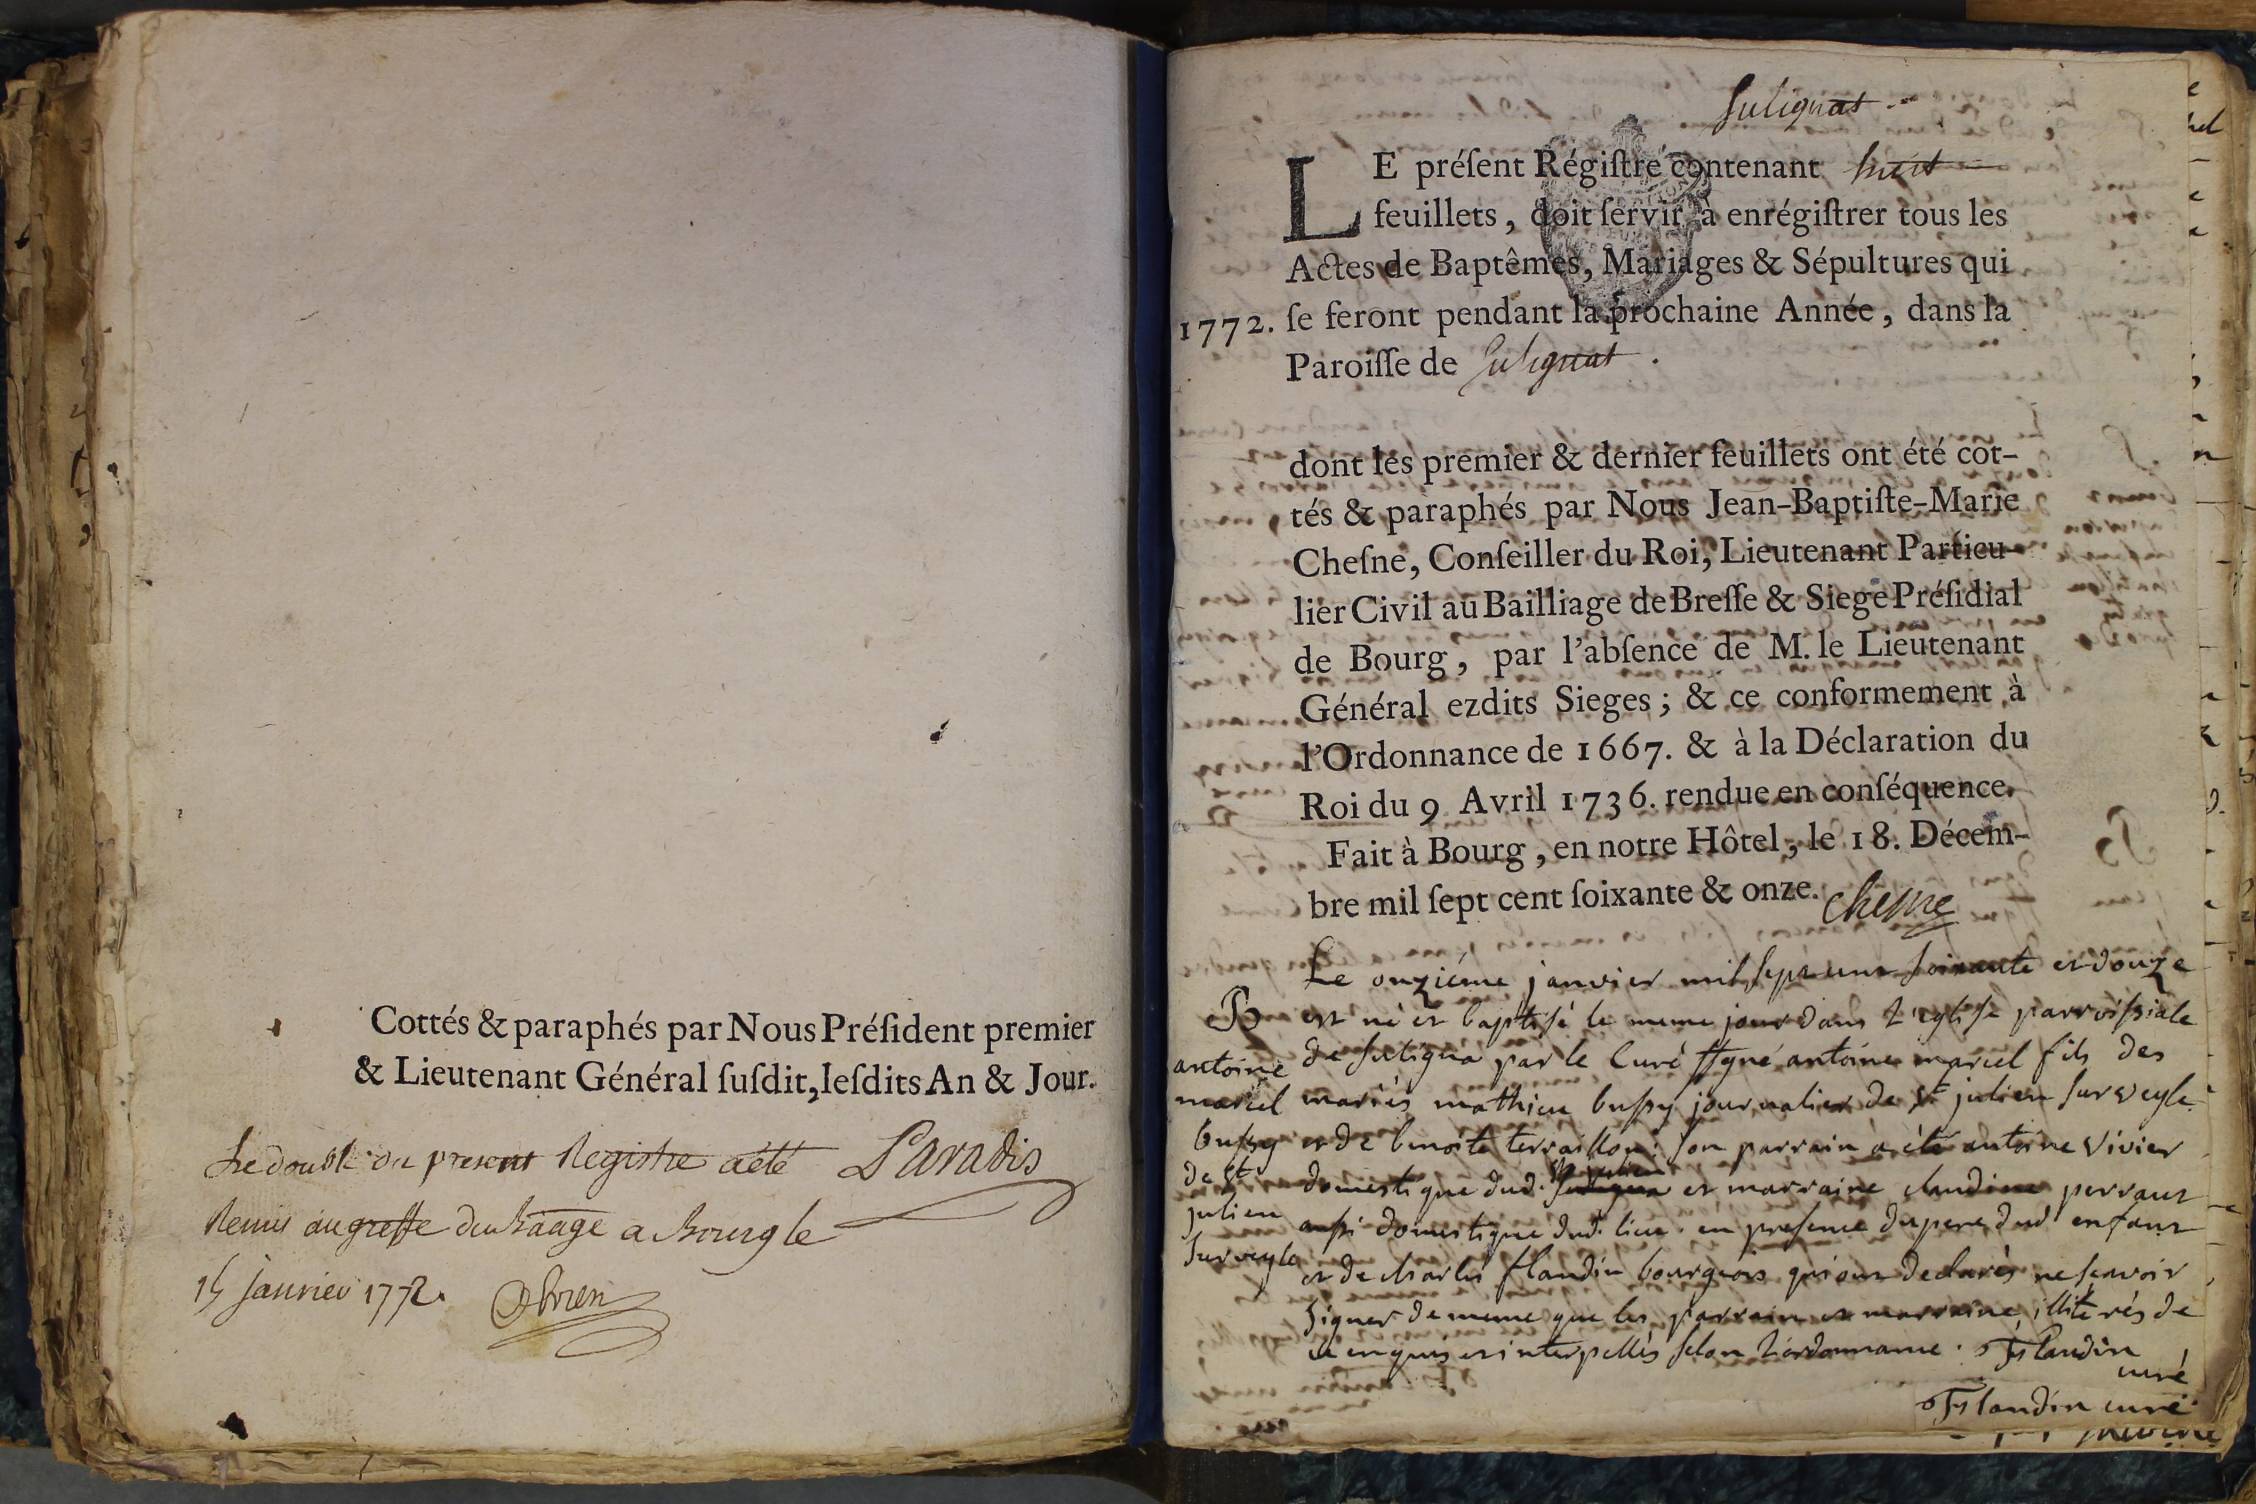 Cottés & paraphés par Nous Préſident premier
& Lieutenant Général ſuſdit, leſdits An & Jour.
Le double du present Registre a été Paradis
Remis au greffe du Baâge a Bourg le
15 janvier 1772.
Sulignat
LE préſent Régiſtre contenant huit
feuillets, doit ſervir à enrégiſtrer tous les
Actes de Baptêmes, Mariages & Sépultures qui
1772. ſe feront pendant la prochaine Année, dans la
Paroiſſe de Sulignat.
dont les premier & dernier feuillets ont été cot-
tés & paraphés par Nous Jean-Baptiſte-Marie
Cheſne, Conſeiller du Roi, Lieutenant Particu-
lier Civil au Bailliage de Breſſe & Siege Préſidial
de Bourg, par l'abſence de M. le Lieutenant
Général ezdits Sieges; & ce conformement à
l'Ordonnance de 1667. & à la Déclaration du
Roi du 9 Avril 1736. rendue en conſéquence.
Fait à Bourg, en notre Hôtel, le 18. Décem-
bre mil ſept cent ſoixante & onze. Chesne
B
antoine
marcel
bussy
de St
julien
sur veyle
Le onziéme janvier mil sept cent soixante et douze
est né et baptisé le meme jour dans l'eglise parroissiale
de suligna par le Curé ssgné antoine marcel fils des
mariés mathieu bussy journalier de St julien sur veyle
et de benoite terraillon: son parrain a été antoine vivier
domestique dud. St julien et marraine claudine perraut
aussi domestique dud. lieu. en presence du pere dud enfant
et de charles flandin bourgeois qui ont declarés ne scavoir
signer de meme que les parrain et marraine, illiterés de
ce enquis et interpellés selon l'ordonnance. Flandin
curé
Flandin curé